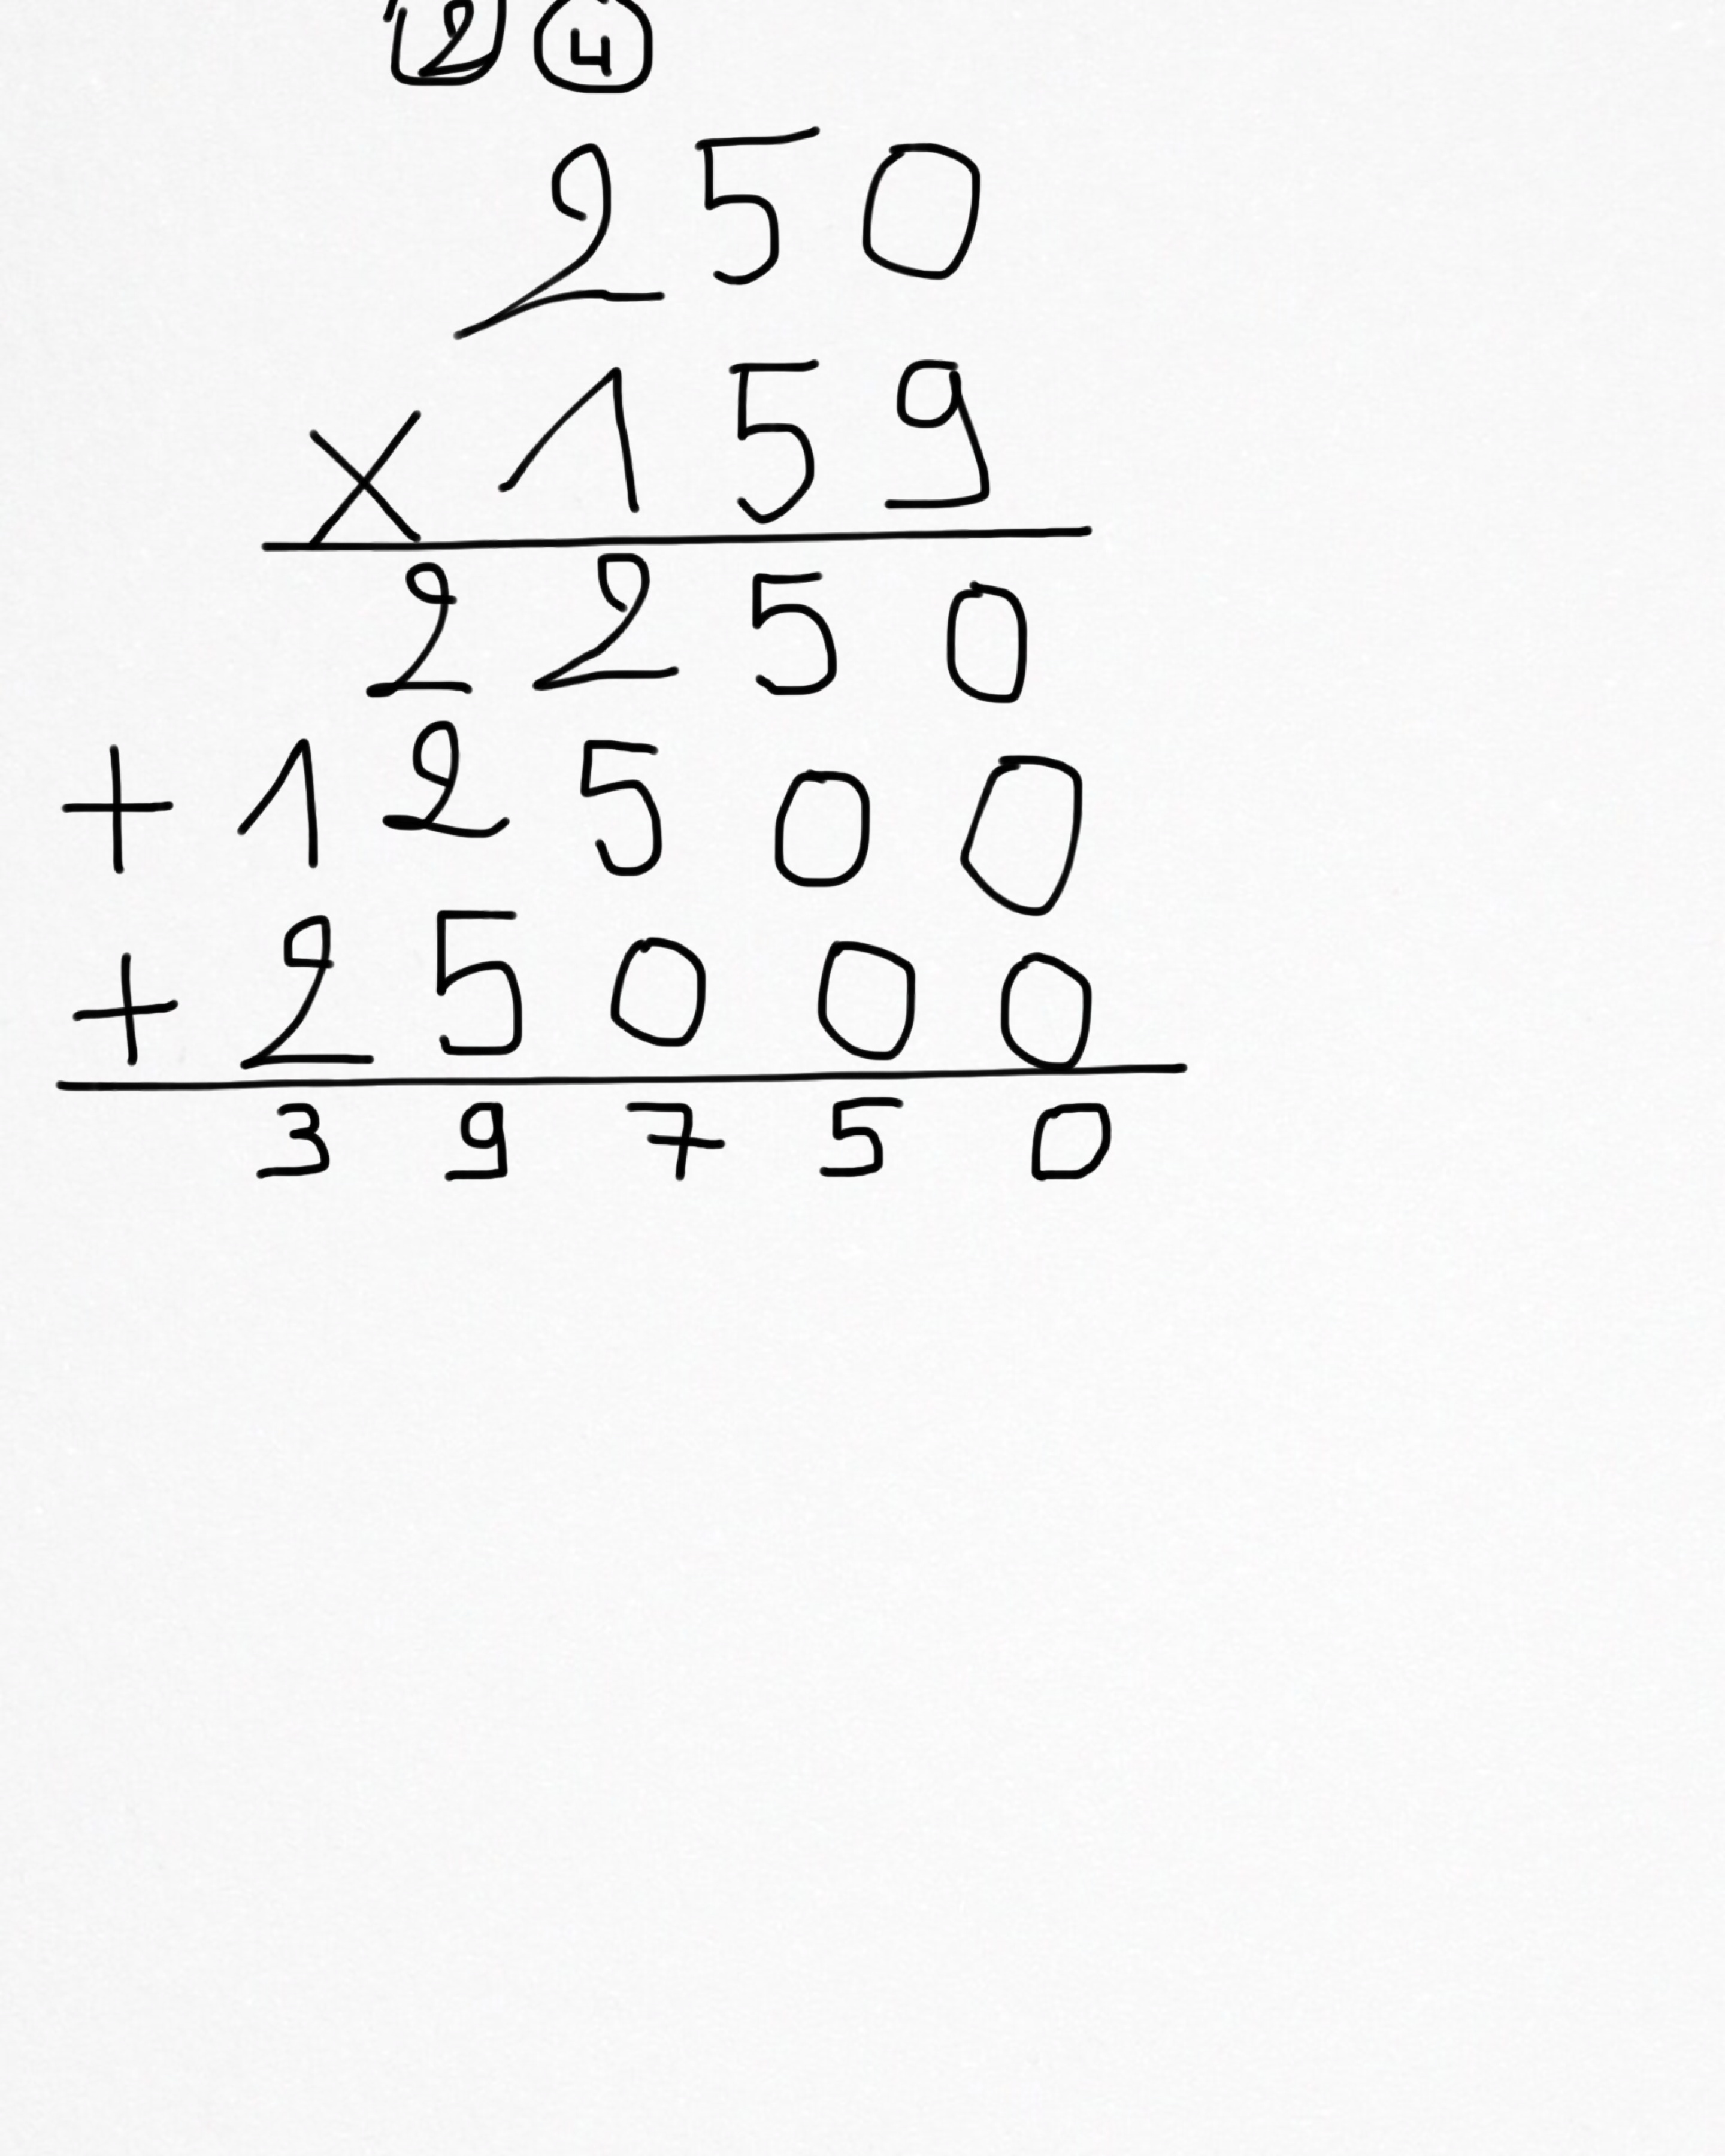 2 4
250
×159
2250
+12500
+25000
39750